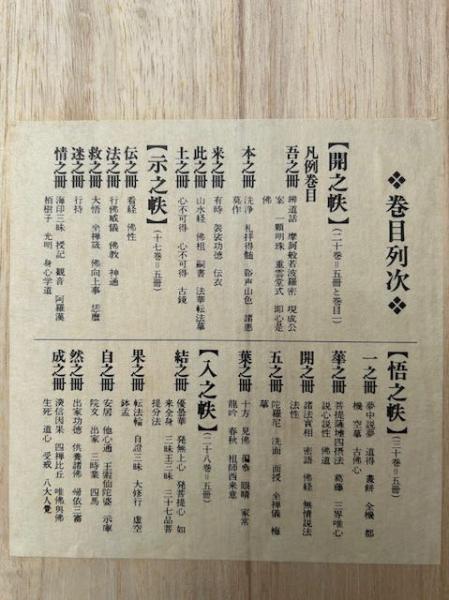 ❖ 巻目列次 ❖
【開之帙】（二十巻＝五冊と巻目一）
凡例巻目
吾之冊 辨道話 摩訶般若波羅密 現成公
案 一顆明珠 重雲堂式 即心是
佛
本之冊 洗浄 礼拝得髄 谿声山色 諸悪
莫作
来之冊 有時 袈裟功徳 伝衣
此之冊 山水経 佛祖 嗣書 法華転法華
土之冊 心不可得 心不可得 古鏡
【示之帙】（十七巻＝五冊）
伝之冊 看経 佛性
法之冊 行佛威儀 佛教 神通
救之冊 大悟 坐禅箴 佛向上事 恁麼
迷之冊 行持
情之冊 海印三昧 授記 観音 阿羅漢
栢樹子 光明 身心学道
【悟之帙】（三十巻＝五冊）
一之冊 夢中説夢 道得 画餅 全機 都
機 空華 古佛心
華之冊 菩提薩埵四摂法 葛藤 三界唯心
説心説性 佛道
開之冊 諸法実相 密語 佛経 無情説法
法性
五之冊 陀羅尼 洗面 面授 坐禅儀 梅
華
葉之冊 十方 見佛 徧参 眼睛 家常
龍吟 春秋 祖師西来意
【入之帙】（二十八巻＝五冊）
結之冊 優曇華 発無上心 発菩提心 如
来全身 三昧王三昧 三十七品菩
提分法
果之冊 転法輪 自證三昧 大修行 虚空
鉢盂
自之冊 安居 他心通 王索仙陀婆 示庫
院文 出家 三時業 四馬
然之冊 出家功徳 供養諸佛 帰依三宝
成之冊 深信因果 四禅比丘 唯佛與佛
生死 道心 受戒 八大人覚